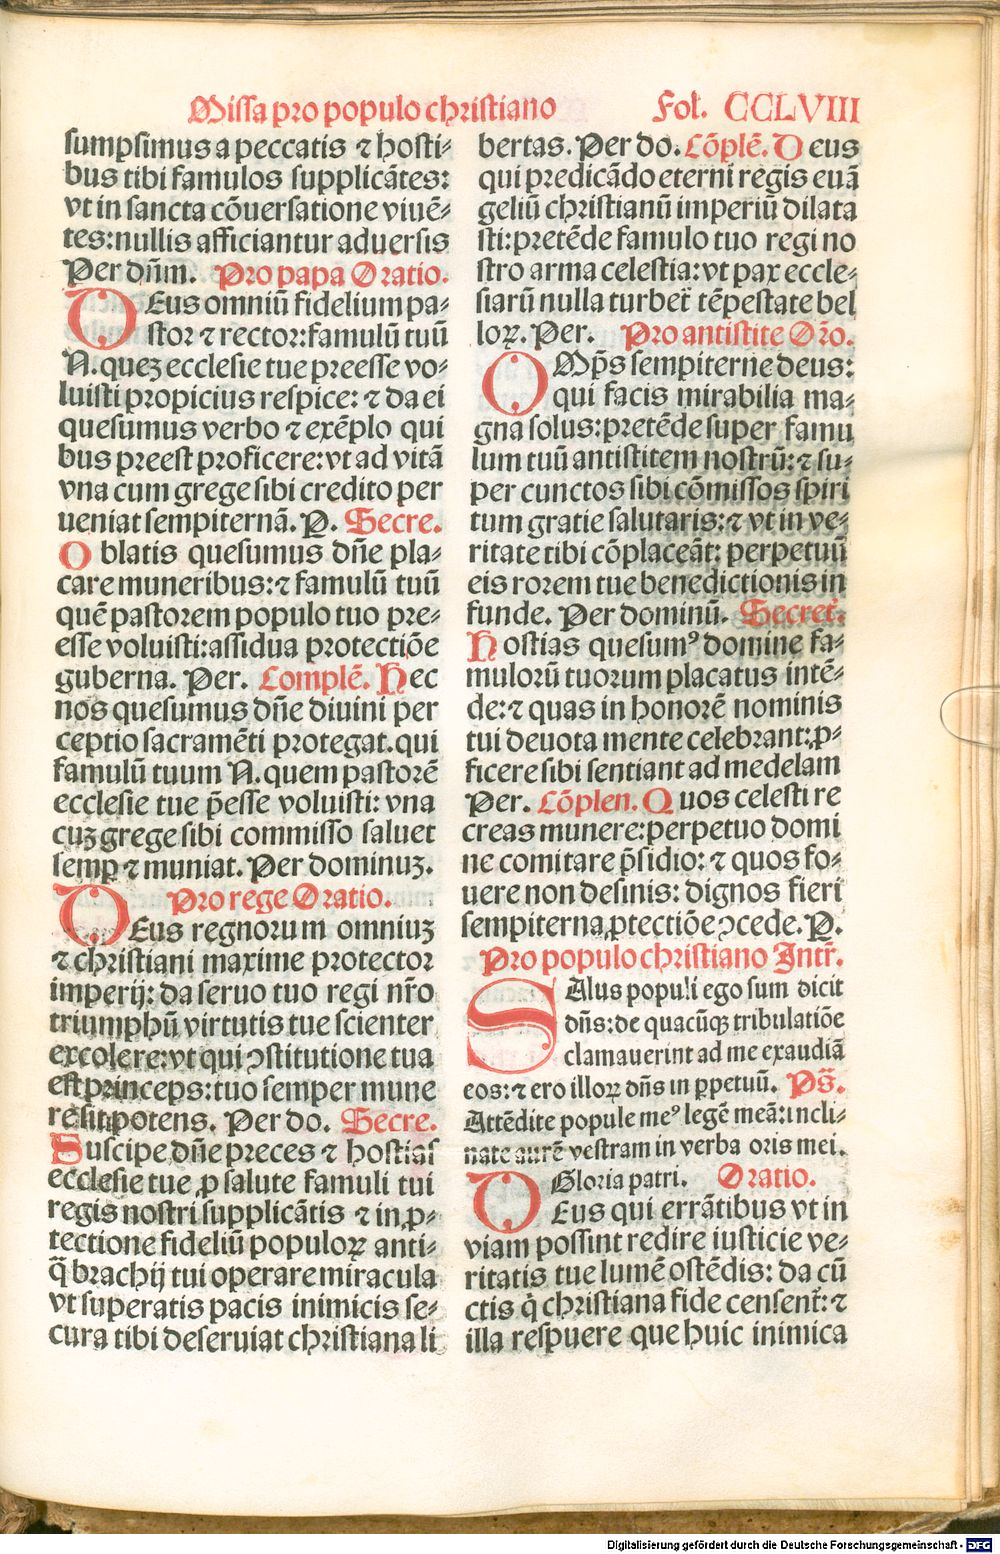 Missa pro populo christiano Fol. CCLVIII
sumpsimus a peccatis ⁊ hosti⸗
bus tibi famulos supplicãtes:
vt in sancta cõuersatione viuẽ⸗
tes: nullis afficiantur aduersis
Per dñm. Pro papa Oratio.
DEus omniũ fidelium pa⸗
stor ⁊ rector: famulũ tuũ
N. quez ecclesie tue preesse vo⸗
luisti propicius respice: ⁊ da ei
quesumus verbo ⁊ exẽplo qui
bus preest proficere: vt ad vitã
vna cum grege sibi credito per
ueniat sempiternã. P. Secre.
Oblatis quesumus dñe pla⸗
care muneribus: ⁊ famulũ tuũ
quẽ pastorem populo tuo pre⸗
esse voluisti: assidua protectiõe
guberna. Per. Complẽ. Hec
nos quesumus dñe diuini per
ceptio sacramẽti protegat. qui
famulũ tuum N. quem pastorẽ
ecclesie tue p̃esse voluisti: vna
cuz grege sibi commisso saluet
semꝑ ⁊ muniat. Per dominuz.
Pro rege Oratio.
DEus regnorum omniuz
⁊ christiani maxime protector
imperij: da seruo tuo regi nr̃o
triumphũ virtutis tue scienter
excolere: vt qui ꝯstitutione tua
est princeps: tuo semper mune
re sit potens. Per do. Secre.
Suscipe dñe preces ⁊ hostias
ecclesie tue ꝓ salute famuli tui
regis nostri supplicãtis ⁊ in ꝓ⸗
tectione fideliũ populoꝝ anti⸗
q̃ brachij tui operare miracula
vt superatis pacis inimicis se⸗
cura tibi deseruiat christiana li
bertas. Per do. Cõplẽ. Deus
qui predicãdo eterni regis euã
geliũ christianũ imperiũ dilata
sti: pretẽde famulo tuo regi no
stro arma celestia: vt pax eccle⸗
siarũ nulla turbet̃ tẽpestate bel
loꝝ. Per. Pro antistite Or̃o.
OMp̃s sempiterne deus:
qui facis mirabilia ma⸗
gna solus: pretẽde super famu
lum tuũ antistitem nostrũ: ⁊ su⸗
per cunctos sibi cõmissos spiri
tum gratie salutaris: ⁊ vt in ve⸗
ritate tibi cõplaceãt: perpetuũ
eis rorem tue benedictionis in
funde. Per dominũ. Secret̃.
Hostias quesumꝰ domine fa⸗
mulorũ tuorum placatus intẽ⸗
de: ⁊ quas in honorẽ nominis
tui deuota mente celebrant: ꝓ⸗
ficere sibi sentiant ad medelam
Per. Cõplen. Quos celesti re
creas munere: perpetuo domi
ne comitare p̃sidio: ⁊ quos fo⸗
uere non desinis: dignos fieri
sempiterna ꝓtectiõe ꝯcede. P.
Pro populo christiano Intr̃.
SAlus populi ego sum dicit
dñs: de quacũqꝫ tribulatiõe
clamauerint ad me exaudiã
eos: ⁊ ero illoꝝ dñs in ꝑpetuũ. Ps̃.
Attẽdite popule meꝰ legẽ meã: incli⸗
nate aurẽ vestram in verba oris mei.
Gloria patri. Oratio.
DEus qui errãtibus vt in
viam possint redire iusticie ve⸗
ritatis tue lumẽ ostẽdis: da cũ
ctis q̇ christiana fide censent̃: ⁊
illa respuere que huic inimica
Digitalisierung gefördert durch die Deutsche Forschungsgemeinschaft - DFG